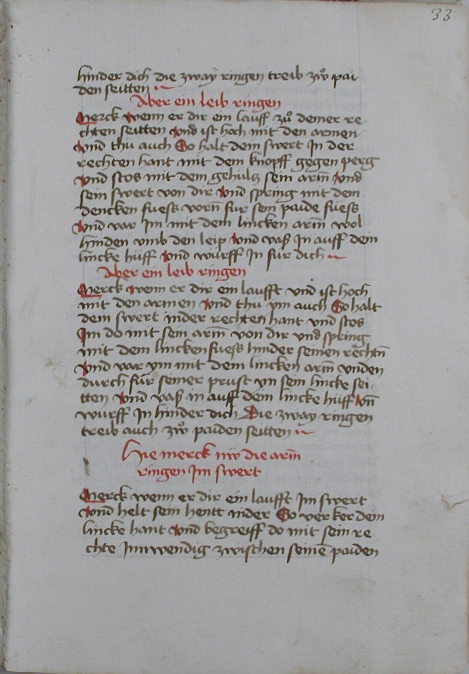 33
hinder dich die zway ringen treib zw pai
den seitten
Aber ein leib ringen
Merck wenn er dir ein lauff zu deiner re
chten seitten vnd ist hoch mit den armen
vnd thu auch So halt dem swert In der
rechten hant mit dem knopff gegen perg
vnd stos mit dem gehulcz sein arm vnd
sein swert von dir vnd spring mit dem
dencken fuess vorn fur sein paide fuess
vnd var In mit dem lincken arm wol
hinden vmb den leip vnd vass In auff dem
lincke huff vnd wurff In fur dich
Aber ein leib ringen
Merck wenn er dir ein laufft vnd ist hoch
mit den armen vnd thu ym auch So halt
dem swert inder rechten hant vnd stos
Im do mit sem arm von dir vnd spring
mit dem lincken fuess hinder seinen rechtn
vnd var ym mit dem lincken arm vnden
durch fur seiner prust yn sem lincke sei
tten vnd vass in auff dem lincke huff vn
wurff In hinder dich Die zway ringen
treib auch zw paiden seitten
Hie merck nw die arm
ringen Im swert
Merck wenn er dir ein laufft Im swert
vnd helt sein hentt nider So verker dem
lincke hant vnd begreiff do mit sem re
chte Inwendig zwischen seine paiden